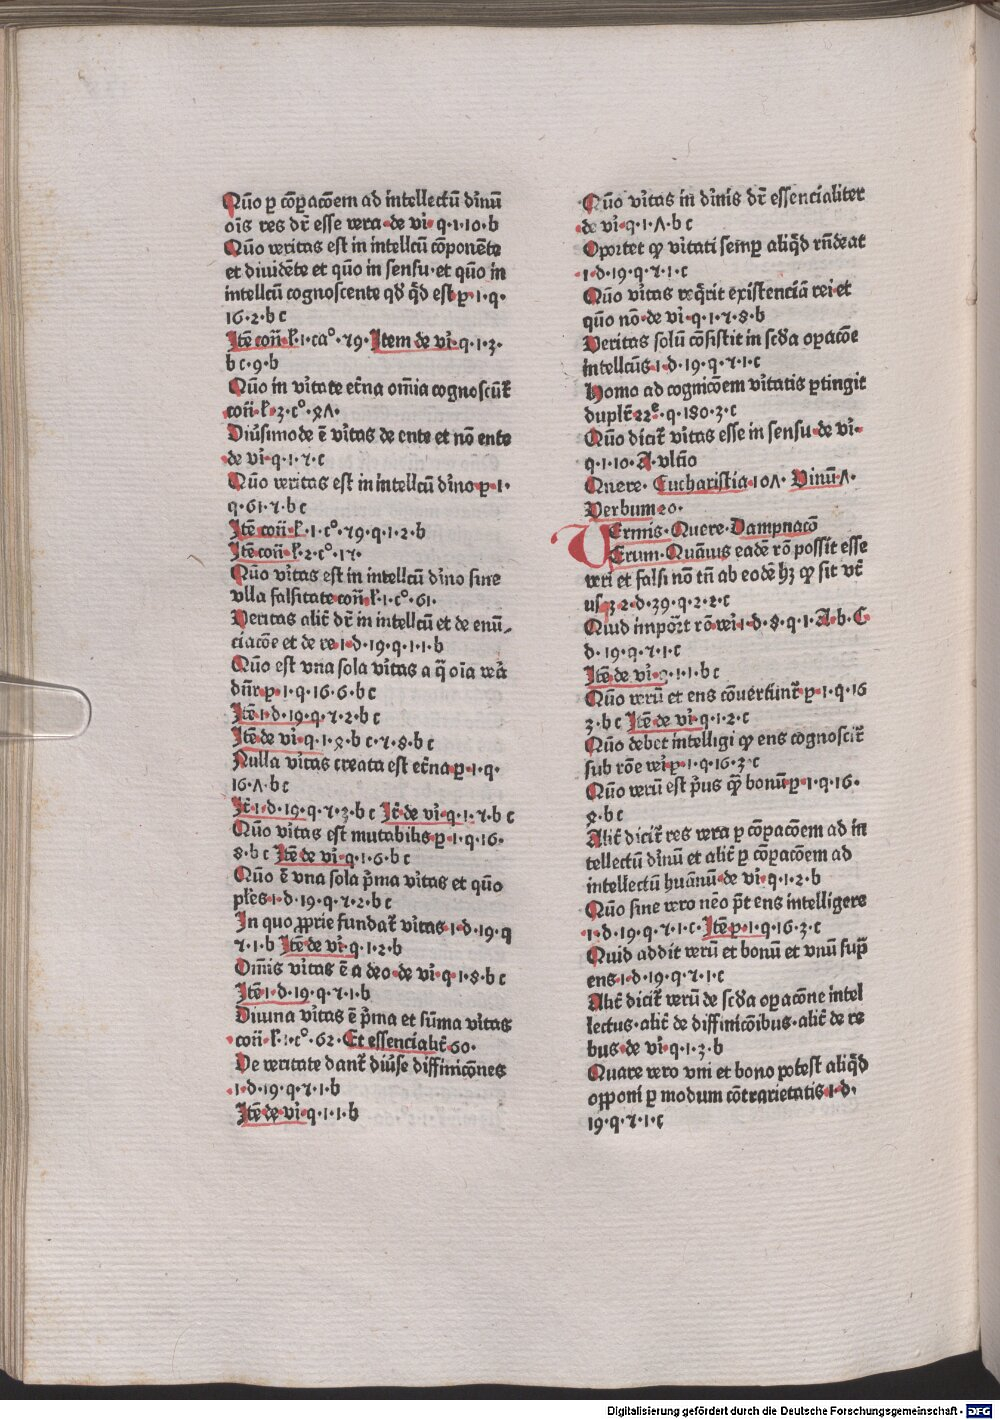 Quō ꝑ cōꝑacōem ad intellectū dīnū
oīs res dr̄ esse vera·de vi·q·1·10·b
Quō veritas est in intellcū cōponēte
et diuidēte et quō in sensu·et quō in
intellcū cognoscente qd̄ qd̄ est·ꝑ·1·q·
16·2·b c
Itē con̄·ł·1·ca°·ꝛ9·Item de vi·q·1·3·
b c·9·b
Quō in vītate et̄na om̄ia cognoscūt᷑
con̄·ł·3·c°·8ʌ·
Diūsimode ē vītas de ente et nō ente
·de vi·q·1·ꝛ·c
Quō veritas est in intellcū dīno·ꝑ·1·
q·61·ꝛ·b c
Itē con̄·ł·1·c°·ꝛ9·q·1·2·b
Itē con̄·ł·2·c°·1ꝛ·
Quō vītas est in intellcū dīno sine
vlla falsitate con̄·ł·1·c°·61·
Veritas alit᷑ dr̄ in intellcū et de enū-
ciacōe et de re·1·d·19·q·1·1·b
Quō est vna sola vītas a q̄ oīa vera
dn̄r·ꝑ·1·q·16·6·b c
Itē·1·d·19·q·ꝛ·2·b c
Itē de vi·q·1·8·b c·ꝛ·8·b c
Nulla vītas creata est et̄na·ꝑ·1·q·
16·ʌ·b c
It᷑·1·d·19·q·ꝛ·3·b c It᷑ de vi·q·1·ꝛ·b c
Quō vītas est mutabilis·ꝑ·1·q·16·
8·b c Itē de vi·q·1·6·b c
Quō ē vna sola p̄ma vītas et quō
pl̄es·1·d·19·q·ꝛ·2·b c
In quo ꝓprie fundat᷑ vītas·1·d·19·q
ꝛ·1·b Itē de vi·q·1·2·b
Om̄is vītas ē a deo·de vi·q·1·8·b c
Itē·1·d·19·q·ꝛ·1·b
Diuina vītas ē p̄ma et sūma vītas
·con̄·ł·1·c°·62·Et essencialit᷑ 60·
De veritate dant᷑ diūse diffinicōnes
·1·d·19·q·ꝛ·1·b
Itē de vi·q·1·1·b
Quō vītas in dīnis dr̄ essencialiter
·de vi·q·1·ʌ·b c
Oportet ꝙ vītati semꝑ aliqd̄ rn̄deat
·1·d·19·q·ꝛ·1·c
Quō vītas req̄rit existenciā rei et
quō nō·de vi·q·1·ꝛ·8·b
Veritas solū cōsistit in scd̄a oꝑacōe
intellcūs·1·d·19·q·ꝛ·1·c
Homo ad cognicōem vītatis ꝑtingit
duplr̄·22ᵉ·q·180·3·c
Quō dicit᷑ vītas esse in sensu·de vi·
q·1·10·A·vltīo
Quere·Eucharistia·10ʌ·Vinū·ʌ·
Verbum·20·
Vermis·Quere·Dampnacō
Verum·Quāuis eadē rō possit esse
veri et falsi nō tn̄ ab eodē hꝫ ꝙ sit vt᷑
usꝫ·2·d·39·q·2·2·c
Quid import᷑ rō veri·1·d·8·q·1·A·b·C·
d·19·q·ꝛ·1·c
Itē de vi·q·1·1·b c
Quō verū et ens cōuertūnt᷑·ꝑ·1·q·16
3·b c Itē de vi·q·1·2·c
Quō debet intelligi ꝙ ens cognoscit᷑
sub rōe veri·ꝑ·1·q·16·3·c
Quō verū est p̄us q̄ bonū·ꝑ·1·q·16·
8·b c
Alit᷑ dicit᷑ res vera ꝑ cōꝑacōem ad in
tellectū dīnū et alit᷑ ꝑ cōꝑacōem ad
intellectū huānū·de vi·q·1·2·b
Quō sine vero nēo pt̄ ens intelligere
·1·d·19·q·ꝛ·1·c·Itē·ꝑ·1·q·16·3·c
Quid addit verū et bonū et vnū sup̄
ens·1·d·19·q·ꝛ·1·c
Alit᷑ dicit᷑ verū de scd̄a oꝑacōne intel
lectus·alit᷑ de diffinicōibus·alit᷑ de re
bus·de vi·q·1·3·b
Quare vero vni et bono potest aliqd̄
opponi ꝑ modum cōtrarietatis·1·d·
19·q·ꝛ·1·c
Digitalisierung gefördert durch die Deutsche Forschungsgemeinschaft - DFG